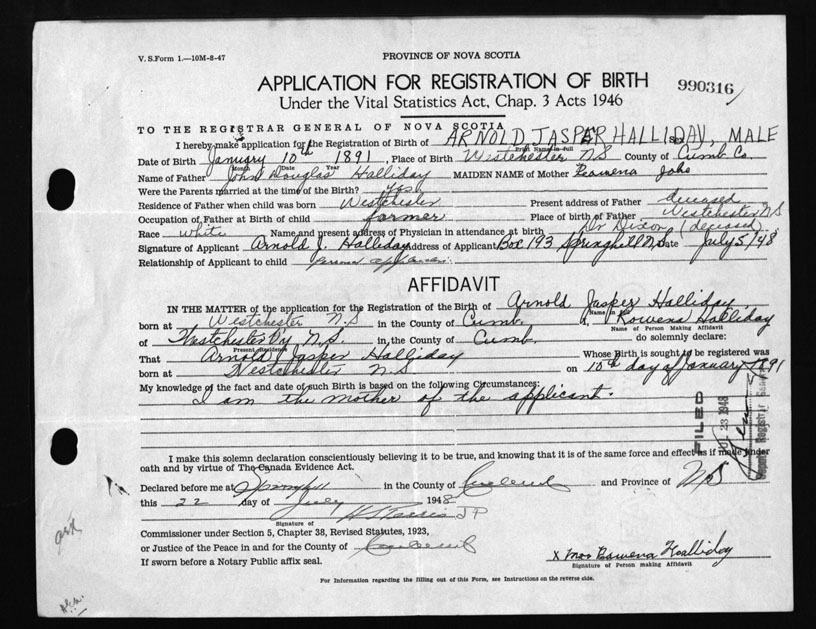 V. S. Form 1.—10M-8-47
PROVINCE OF NOVA SCOTIA
APPLICATION FOR REGISTRATION OF BIRTH
990316
Under the Vital Statistics Act, Chap. 3 Acts 1946
TO THE REGISTRAR GENERAL OF NOVA SCOTIA
I hereby make application for the Registration of Birth of ARNOLD JASPER HALLIDAY, Sex MALE
Print Name in full
Date of Birth January 10th 1891, Place of Birth Westchester N S County of Cumb Co
Month Day Year
Name of Father John Douglas Halliday MAIDEN NAME of Mother
Were the Parents married at the time of the Birth? yes
Residence of Father when child was born Westchester Present address of Father deceased
Occupation of Father at Birth of child farmer Place of birth of Father Westchester N S
Race white Name and present address of Physician in attendance at birth Dr Dixon (deceased)
Signature of Applicant Arnold J. Halliday Address of Applicant Box 193 Springhill N.S Date July 5/48
Relationship of Applicant to child
AFFIDAVIT
IN THE MATTER of the application for the Registration of the Birth of Arnold Jasper Halliday
Name in full
born at Westchester N.S in the County of Cumb. I, Rowena Halliday
Name of Person Making Affidavit
of N.S. in the County of Cumb. do solemnly declare:
Present Residence
That Arnold Jasper Halliday Whose Birth is sought to be registered was
born at Westchester N.S on 10th day of January 1891
My knowledge of the fact and date of such Birth is based on the following Circumstances:
I am the mother of the applicant.
FILED
23 1948
I make this solemn declaration conscientiously believing it to be true, and knowing that it is of the same force and effect as if made under
oath and by virtue of The Canada Evidence Act.
Declared before me at Springhill in the County of Cumberland and Province of N.S
this 22 day of July 1948
J P
Signature of
Commissioner under Section 5, Chapter 38, Revised Statutes, 1923,
or Justice of the Peace in and for the County of Cumberland
If sworn before a Notary Public affix seal.
x Mrs Rowena Halliday
Signature of Person making Affidavit
For Information regarding the filling out of this Form, see Instructions on the reverse side.